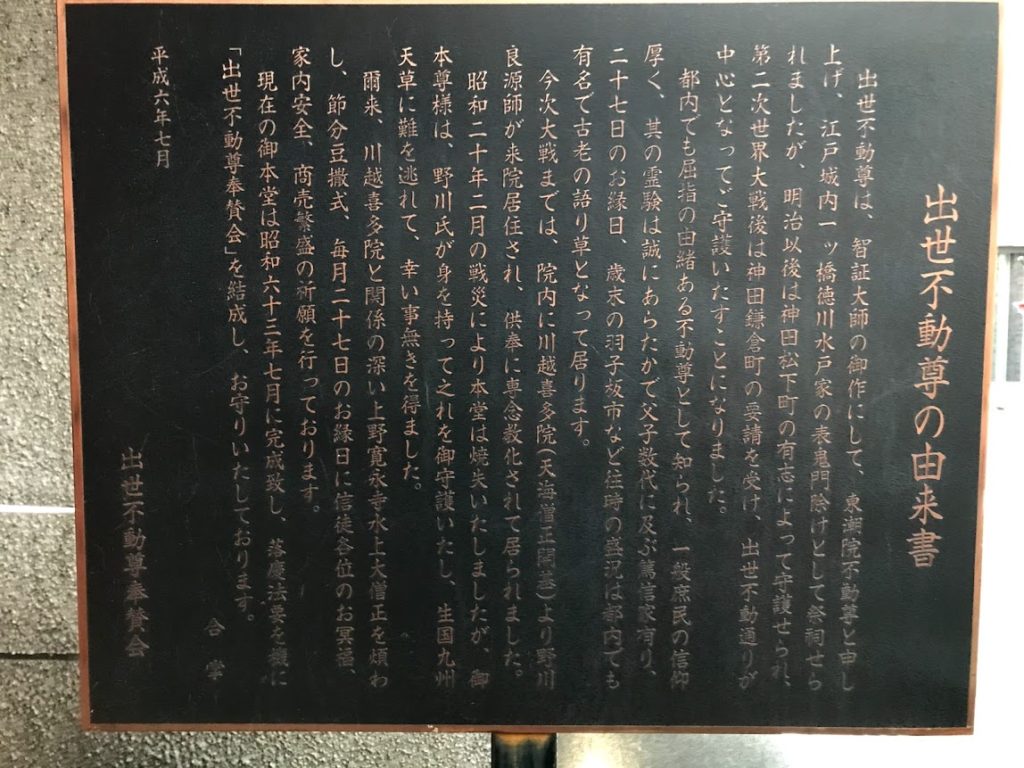 出世不動尊の由来書
出世不動尊は、智証大師の御作にして、東潮院不動尊と申し
上げ、江戸城内一ッ橋徳川水戸家の表鬼門除けとして祭祠せら
れましたが、明治以後は神田松下町の有志によって守護せられ、
第二次世界大戦後は神田鎌倉町の要請を受け、出世不動通りが
中心となってご守護いたすことになりました。
都内でも屈指の由緒ある不動尊として知られ、一般庶民の信仰
厚く、其の霊験は誠にあらたかで父子数代に及ぶ篤信家有り、
二十七日のお縁日、歳末の羽子板市など往時の盛況は都内でも
有名で古老の語り草となって居ります。
今次大戦までは、院内に川越喜多院(天海僧正開基)より野川
良源師が来院居住され、供奉に専念教化されて居られました。
昭和二十年二月の戦災により本堂は焼失いたしましたが、御
本尊様は、野川氏が身を持って之れを御守護いたし、生国九州
天草に難を逃れて、幸い事無きを得ました。
爾来、川越喜多院と関係の深い上野寛永寺水上大僧正を煩わ
し、節分豆撒式、毎月二十七日のお縁日に信徒各位のお冥福、
家内安全、商売繁盛の祈願を行っております。
現在の御本堂は昭和六十三年七月に完成致し、落慶法要を機に
「出世不動尊奉賛会」を結成し、お守りいたしております。
合掌
平成六年七月
出世不動尊奉賛会